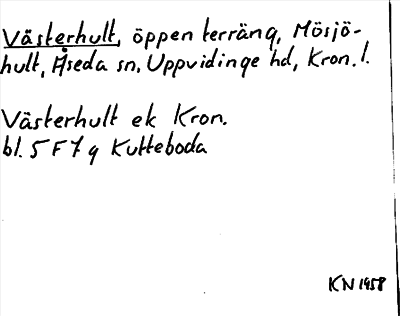 Västerhult, öppen terräng, Mösjö-
hult, Åseda sn, Uppvidinge hd, Kron. l.
Västerhult ek Kron.
bl. 5 F 7 g Kutteboda
KN 1958